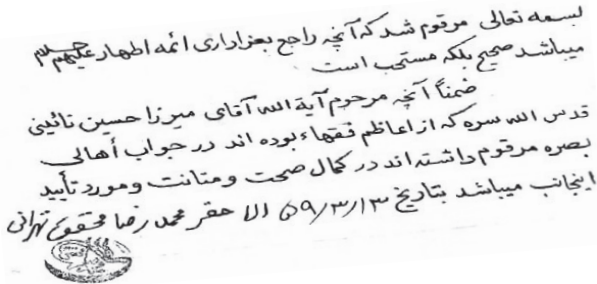 بسمه تعالی مرقوم شد که آنچه راجع بعزاداری ائمه اطهار علیهم السلام
میباشد صحیح بلکه مستحب است
ضمناً آنچه مرحوم آیة الله آقای میرزا حسین نائینی
قدس الله سره که از اعاظم فقهاء بوده اند در جواب أهالی
بصره مرقوم داشته اند در کمال صحت و متانت و مورد تأیید
اینجانب میباشد بتاریخ ۵۹/۳/۱۳ الاحقر محمد رضا محققی تهرانی